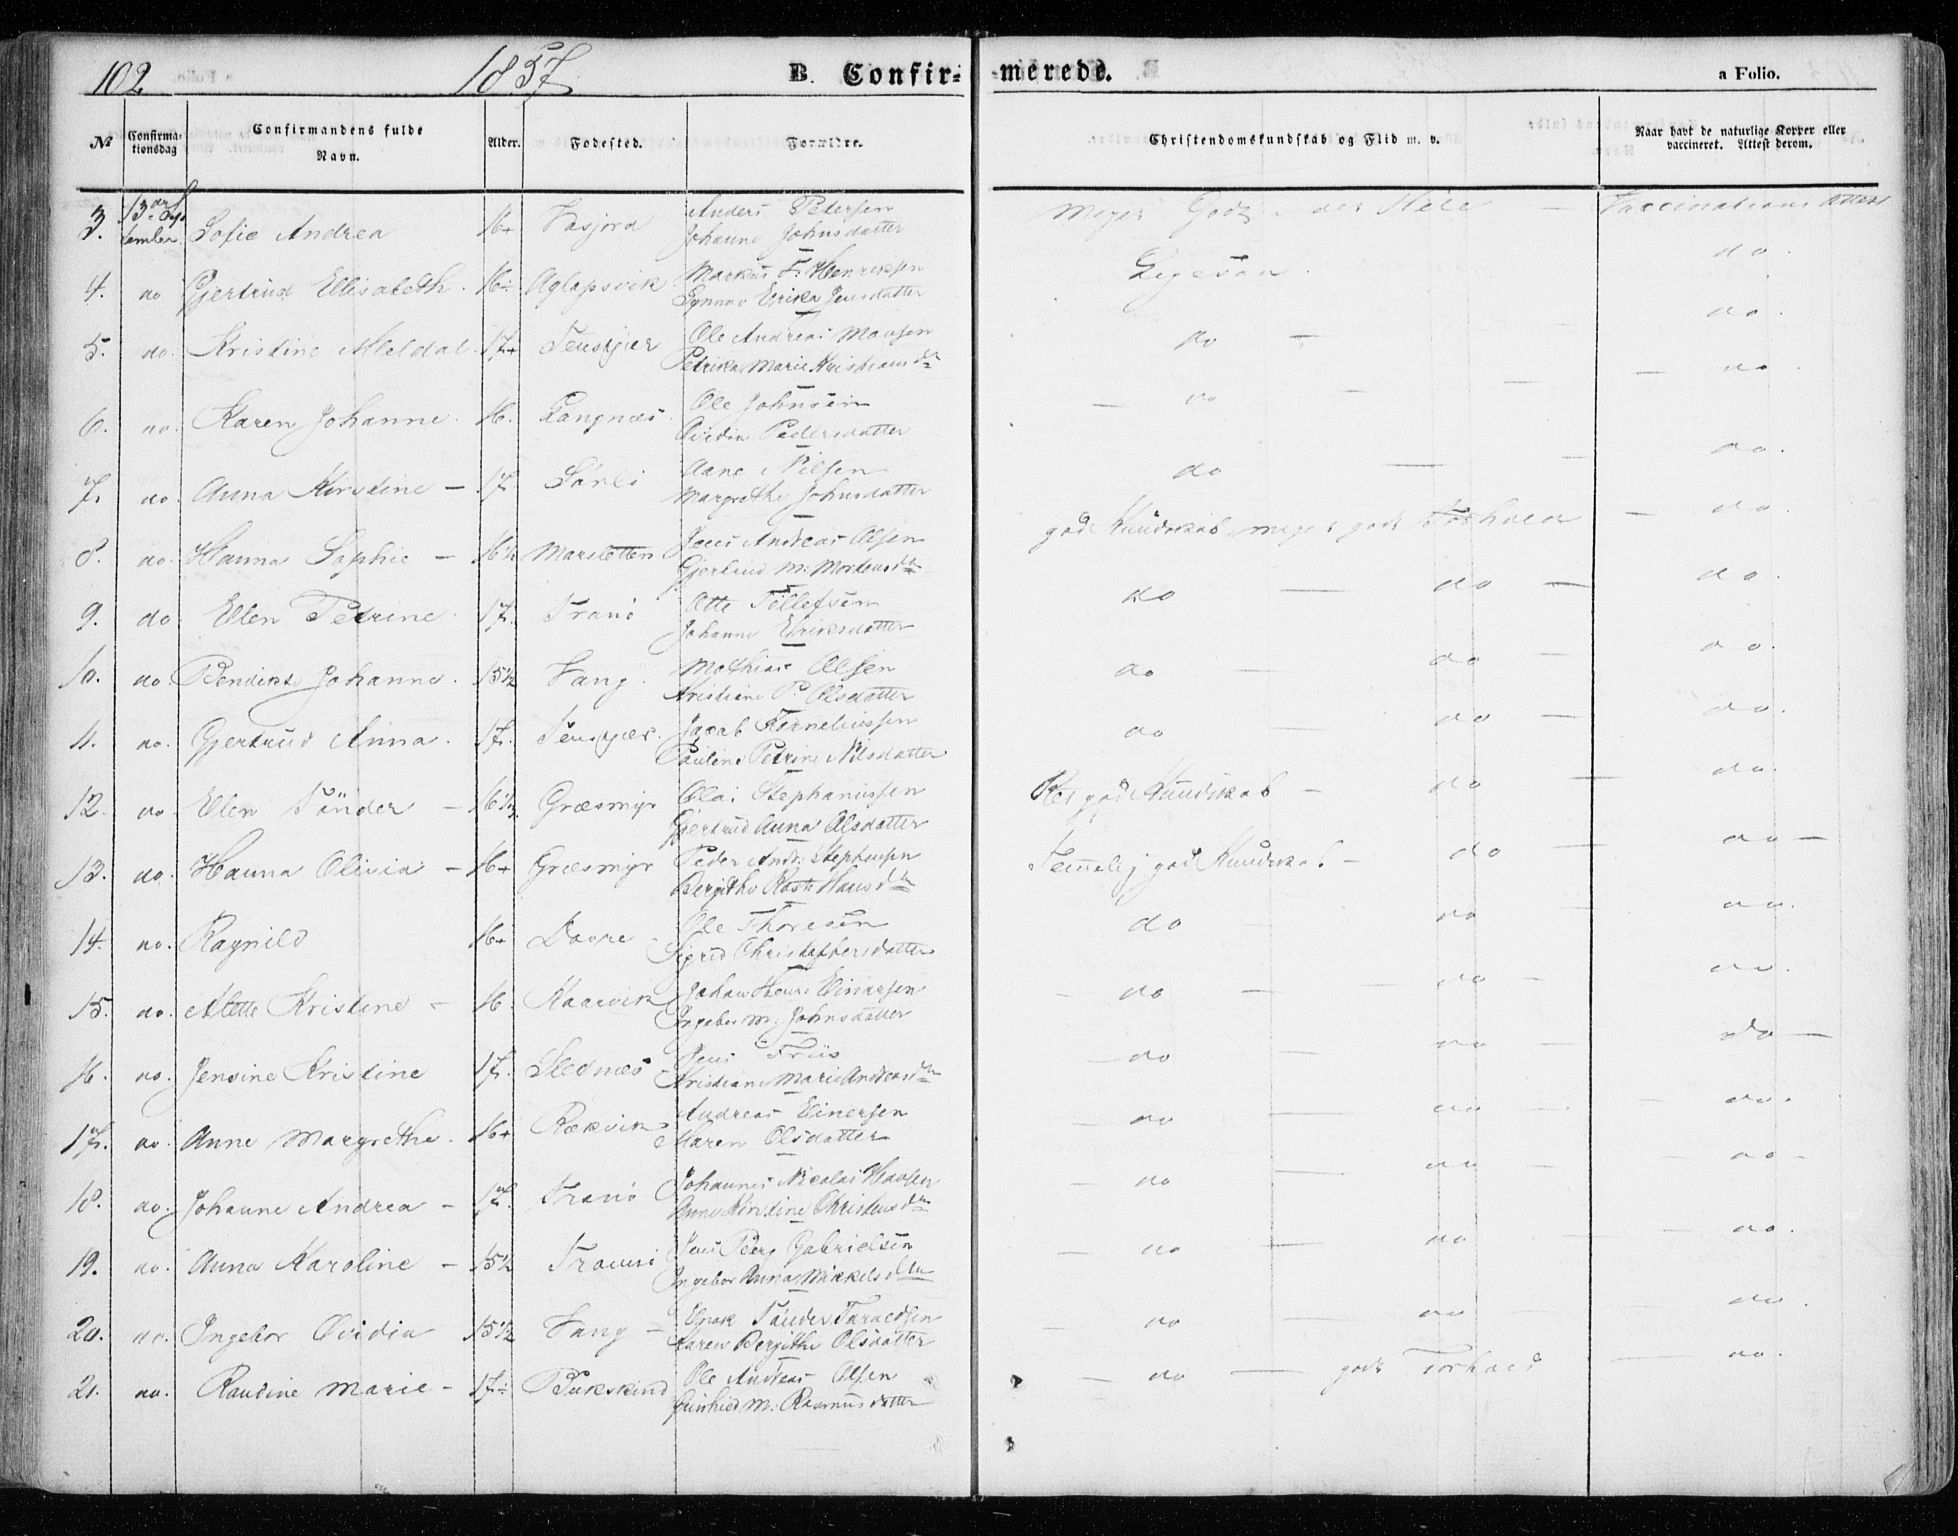 102
1857
B. Confir-
-merede.
a Folio.
№ Confirmationsdag Confirmandens fulde Navn. Alder. Fødested. Forældre. Christendomskundskab og Flid m. v. Naar havt de naturlige Kopper eller vaccineret. Attest derom.
3. 13de September Sofie Andrea 16+ Vasjord Anders Petersen Meget Godt det Hele — Vaccinations Attest
Johanne Johnsdatter
4. do Gjertrud Ellisabeth. 16÷ Aglapsvik Markus F. Henriksen Ligesaa. do.
Synnav Erika Jensdatter
5. do. Kristine Meldal 17+ Tenskjer Ole Andreas Mausen do — do.
Petrika Marie Kristians dtr
6. do. Karen Johanne. 16. Langnæs Ole Johnsen — do — — — do.
Ovidia Pedersdatter
7. do. Anna Kirstine — 17. Sørli Aane Nilsen do — — do.
Margrethe Johnsdatter
8. do. Hanna Sophie — 16½ Marsletten Jens Andreas Olsen god Kundskab, meget godt Forhold — do.
Gjertrud M. Mortensdtr
9. do Ellen Petrine. 17. Tranö Otte Tollefsen do — do — do.
Johanne Eriksdatter
10. do. Bendikte Johanne. 15½ Vang. Mathias Olsen do — do — do.
Kristiane P. Olsdatter
11. do. Gjertrud Anna. 17. Tenskjær. Jacob Kornelinssen do — do — do.
Pauline Petrine Nilsdatter
12. do Elen Tønder — 16½ Græsmyr Olai Stephanussen Ret god Kundskab — do — do.
Gjertrud Anna Olsdatter
13. do. Hanna Olivia — 16+ Græsmyr Peder Andr: Stephensen Temmelig god Kundskab — do — do —
Bergithe Rasti Hans dtr
14. do. Ragnild 16+ Dovre Ole Thoresen do — do — do.
Sigrid Christophersdatter
15. do. Alette Kristine — 16. Kaarvik Johan Einarsen — do — — do — do.
Ingebor M. Johnsdatter
16. do. Jensine Kristine 17. Slednæs Jens Friis — do — do — do —
Kristiane Marie Andersdtr
17. do. Anne Margrethe. 16+ Rækvik Andreas Einersen — do — do — do.
Maren Olsdatter
18. do. Johanne Andrea — 17. Tranö Johannes Nicolai Hansen — do — do — — do —
Anne Kirstine Christensdtr
19. do. Anna Karoline — 15½ Jens Peer Gabrielsen — do — do — do.
Ingebor Anna Mikkels dtr
20. do. Ingebor Ovidia 15½ Vang — Enok Tønder — do — do — do.
Karen Bergithe Olsdatter
21. do. Raudine Marie — 17÷ Bukskind Ole Andreas Olsen — do — godt Forhold — do.
Gunhild M. Rasmusdatter